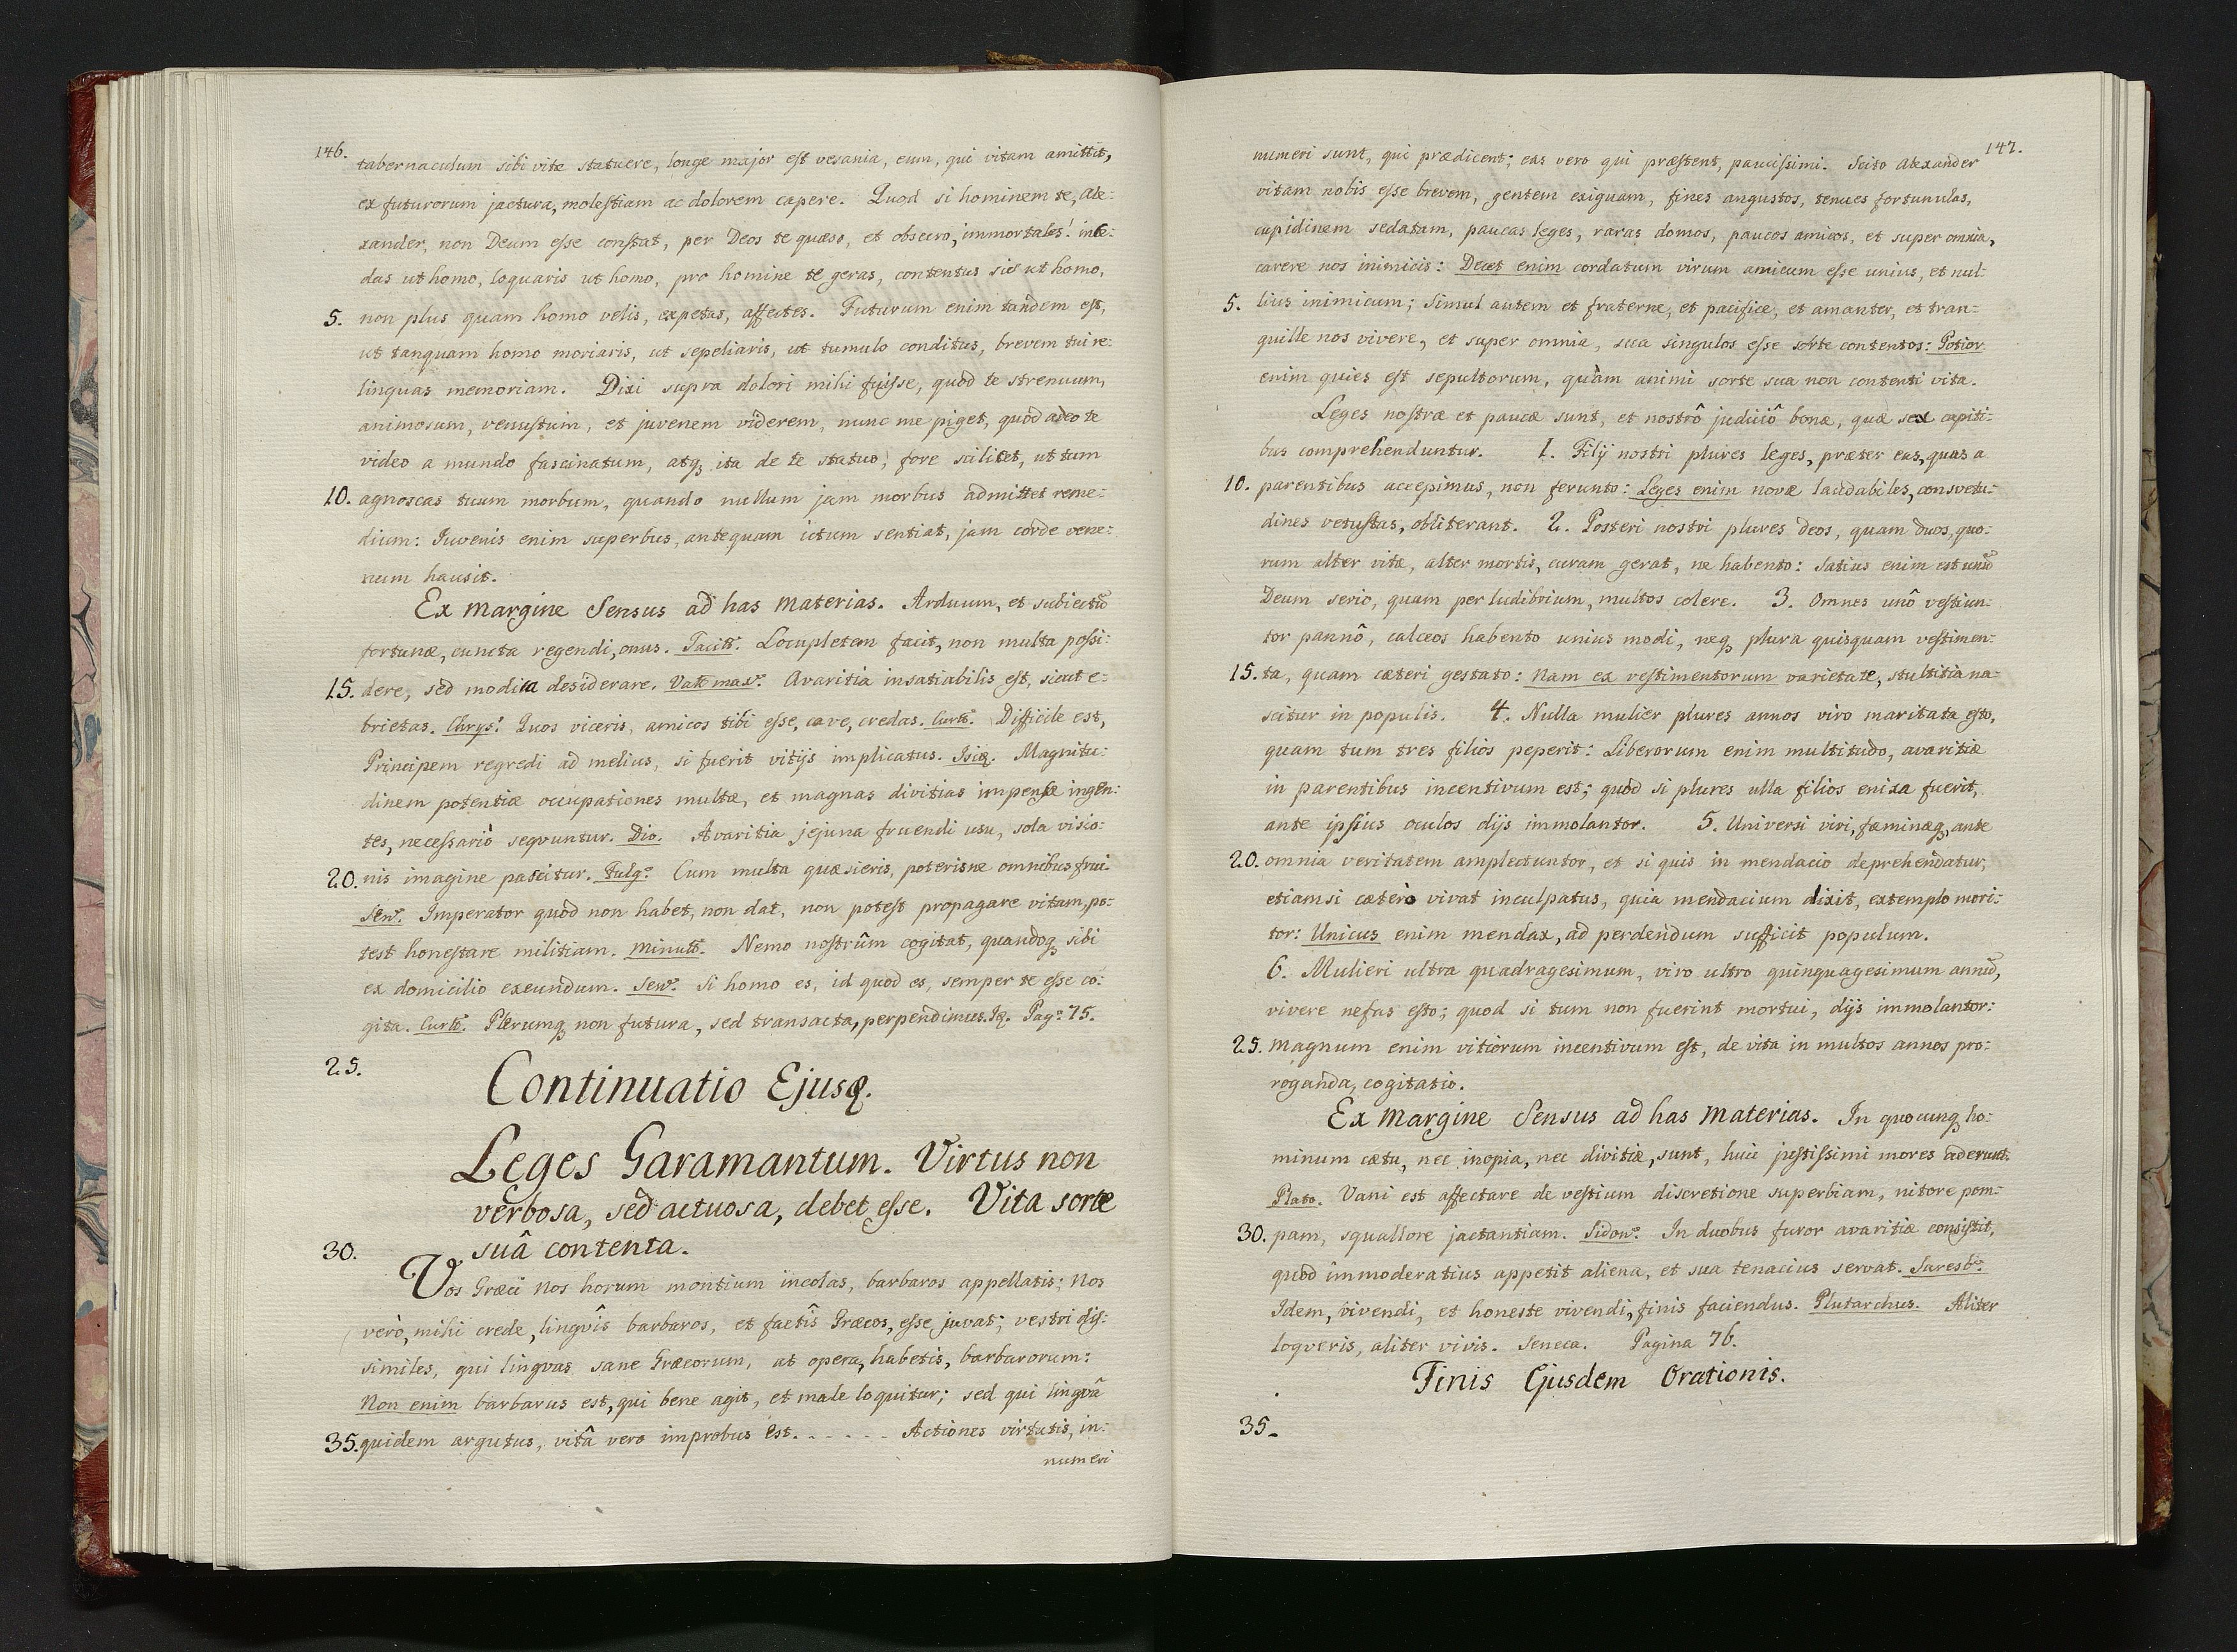 146.
tabernaculum sibi vitæ statuere, longe major est vesania, eum, qui vitam amittit,
ex futurorum jactura, molestiam ac dolorem capere. Quod si hominem te, Ale:
xander, non Deum esse constat, per Deos te quæso, et obsecro, immortales! ince:
das ut homo, loquaris ut homo, pro homine te geras, contentus sis ut homo,
5. non plus quam homo velis, expetas, affectes. Futurum enim tandem est,
ut tanquam homo moriaris, ut sepeliaris, ut tumulo conditus, brevem tui re:
linquas memoriam. Dixi supra dolori mihi fuisse, quod te strenuum,
animosum, venustum, et juvenem viderem, nunc me piget, quod adeo te
video a mundo fascinatum, atq₃ ita de te statuo, fore scilicet, ut tum
10. agnoscas tuum morbum, quando nullum jam morbus admittet reme:
dium: Iuvenis enim superbus, antequam ictum sentiat, jam corde vene:
num hausit.
Ex Margine Sensus ad has Materias. Arduum, et subiectū
fortunæ, cuncta regendi, onus. Tacitꝰ. Locupletem facit, non multa possi:
15. dere, sed modica desiderare. Valꝰ maxꝰ. Avaritia insatiabilis est, sicut e:
brietas. Chrysꝰ. Quos viceris, amicos tibi esse, cave, credas. Curtꝰ. Difficile est,
Principem regredi ad melius, si fuerit vitijs implicatus. Isiq. Magnitu:
dinem potentiæ occupationes multæ, et magnas divitias impensæ ingen:
tes, necessariò seqvuntur. Dio. Avaritia jejuna fruendi usu, sola visio:
20. nis imagine pascitur. Fulgꝰ. Cum multa quæsieris, poterisne omnibus frui.
Senꝰ. Imperator quod non habet, non dat, non potest propagare vitam, po:
test honestare militiam. Minutꝰ. Nemo nostrûm cogitat, quandoq₃ sibi
ex domicilio exeundum. Senꝰ. Si homo es, id quod es, semper te esse co:
gita. Curtꝰ. Plerumq₃ non futura, sed transacta, perpendimus. Iq. Pagꝰ 75.
25.
Continuatio Ejusq.
Leges Garamantum. Virtus non
verbosa, sed actuosa, debet esse. Vita sorte
30. suâ contenta.
Vos Græci nos horum montium incolas, barbaros appellatis; nos
verò, mihi crede, lingvîs barbaros, et factîs Græcos, esse juvat; vestri dis:
similes, qui lingvas sane Græcorum, at opera, habetis, barbarorum:
Non enim barbarus est, qui bene agit, et male loquitur; sed qui lingvâ
35. quidem argutus, vitâ vero improbus est. - - - - - - Actiones virtutis, in:
numeri
147.
numeri sunt, qui prædicent; eas vero qui præstent, paucissimi. Scito Alexander
vitam nobis esse brevem, gentem exiguam, fines angustos, tenues fortunulas,
cupidinem sedatam, paucas leges, raras domos, paucos amicos, et super omnia,
carere nos inimicis: Decet enim cordatum virum amicum esse unius, et nul:
5. lius inimicum; simul autem et fraterne, et pacifice, et amanter, et tran:
quille nos vivere, et super omnia, sua singulos esse sorte contentos: Potior
enim quies est sepultorum, quàm animi sorte sua non contenti vita.
Leges nostræ et paucæ sunt, et nostrô judiciô bonæ, quæ sex capiti:
bus comprehenduntur. 1. Filij nostri plures leges, præter eas, quas a
10. parentibus accepimus, non ferunto: Leges enim novæ laudabiles, consvetu:
dines vetustas, obliterant. 2. Posteri nostri plures Deos, quam duos, quo:
rum alter vitæ, alter mortis, curam gerat, ne habento: Satius enim est unū
Deum serio, quam per ludibrium, multos colere. 3. Omnes unô vestiun:
tor pannô, calceos habento unius modi, neq₃ plura quisquam vestimen:
15. ta, quam cæteri gestato: Nam ex vestimentorum varietate, stultitia na:
scitur in populis. 4. Nulla mulier plures annos viro maritata esto,
quam tum tres filios peperit: Liberorum enim multitudo, avaritiæ
in parentibus incentivum est; quod si plures ulla filios enixa fuerit,
ante ipsius oculos dijs immolantor. 5. Universi viri, fæminæq₃, ante
20. omnia veritatem amplectuntor, et si quis in mendacio deprehendatur,
etiamsi cæterò vivat inculpatus, quia mendacium dixit, extemplo mori:
tor: Unicus enim mendax, ad perdendum sufficit populum.
6. Mulieri ultra quadragesimum, viro ultro quinquagesimum annū,
vivere nefas esto; quod si tum non fuerint mortui, dijs immolantor:
25. Magnum enim vitiorum incentivum est, de vita in multos annos pro:
roganda, cogitatio.
Ex Margine Sensus ad has Materias. In quocunq₃ ho:
minum cætu, nec inopia, nec divitiæ, sunt, huic justissimi mores aderunt.
Plato. Vani est affectare de vestium discretione superbiam, nitore pom:
30. pam, squallore jactantiam. Sidonꝰ. In duobus furor avaritiæ consistit,
quod immoderatius appetit aliena, et sua tenacius servat. Saresbꝰ.
Idem, vivendi, et honeste vivendi, finis faciendus. Plutarchus. Aliter
loqveris, aliter vivis. Seneca. Pagina 76.
Finis Ejusdem Orationis.
35.